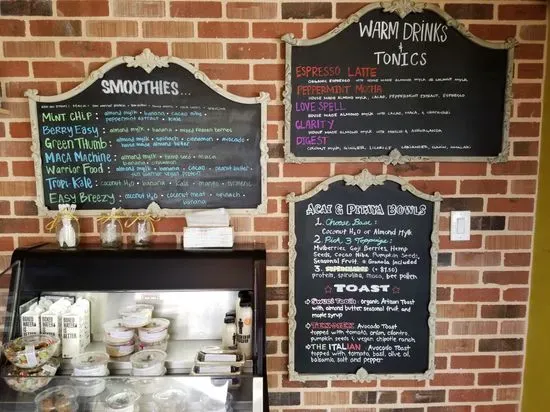 SMOOTHIES...
MINT CHIP: almond mylk • banana • cacao nibs •
peppermint extract • kale
Berry Easy: almond mylk • banana • mixed frozen berries
Green Thumb: almond mylk • spinach • cinnamon • avocado •
house made almond butter
MACA MACHINE: almond mylk • hemp seeds • maca
banana • cinnamon
Warrior Food: almond mylk • banana • cacao • peanut butter
sun warrior vegan protein
Tropi-Kale: coconut H2O • banana • kale • mango • turmeric
Easy Breezy: coconut H2O • coconut meat • spinach
banana • dates
WARM DRINKS
& TONICS
ESPRESSO LATTE
ORGANIC ESPRESSO WITH HOUSE MADE ALMOND MYLK OR COCONUT MYLK
PEPPERMINT MOCHA
HOUSE MADE ALMOND MYLK, CACAO, PEPPERMINT EXTRACT, ESPRESSO
LOVE SPELL
HOUSE MADE ALMOND MYLK, CACAO, MACA,
CLARITY
HOUSE MADE ALMOND MYLK WITH MATCHA & ASHWAGANDA
DIGEST
COCONUT MYLK, GINGER,
ACAI & PITAYA BOWLS
1. Choose Base:
Coconut H2O or Almond Mylk
2. Pick 3 Toppings:
Mulberries, Goji Berries, Hemp
Seeds, Cacao Nibs, Pumpkin Seeds,
Seasonal Fruit. & Granola Included
3. SUPERCHARGE (+ $1.50)
protein, spirulina, maca, bee pollen
☆ TOAST ☆
Sweet Tooth: organic Artisan Toast
with almond butter, seasonal fruit, and
more.
Avocado Toast
topped with tomato, onion, cilantro,
pumpkin seeds & vegan chipotle ranch
THE ITALIAN: Avocado Toast
topped with tomato, basil, olive oil,
balsamic, salt and pepper
BOXED
WATER
IS
BETTER